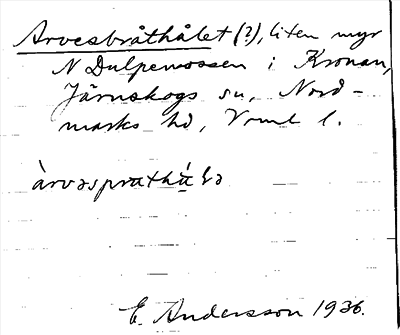 Arvesbråthålet (?), liten myr
N Dulpemossen i Kronan,
Järnskogs sn, Nord-
marks hd, Vrml l.
àrvəsprathå̀lə
E. Andersson 1936.